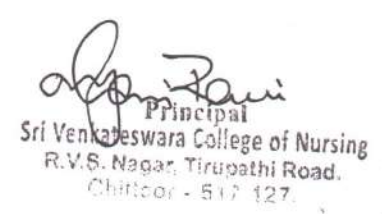 Principal
Sri Venkateswara College of Nursing
R.V.S. Nagar, Tirupathi Road.
Chittoor - 517 127.